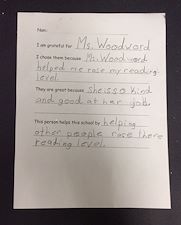 Nom:
I am grateful for Ms. Woodword
I chose them because Ms. Woodword
helped me rase my reading
level.
They are great because she is so kind
and good at her job.
This person helps this school by helping
other people rase there
reading level.